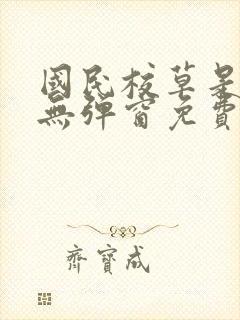 國民校草是
無彈窗免費
齊寶成